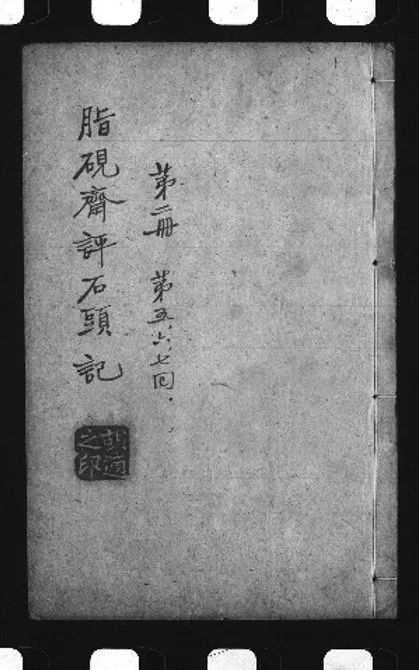 第二冊　第五、六、七回.
脂硯齋評石頭記
胡適
之印